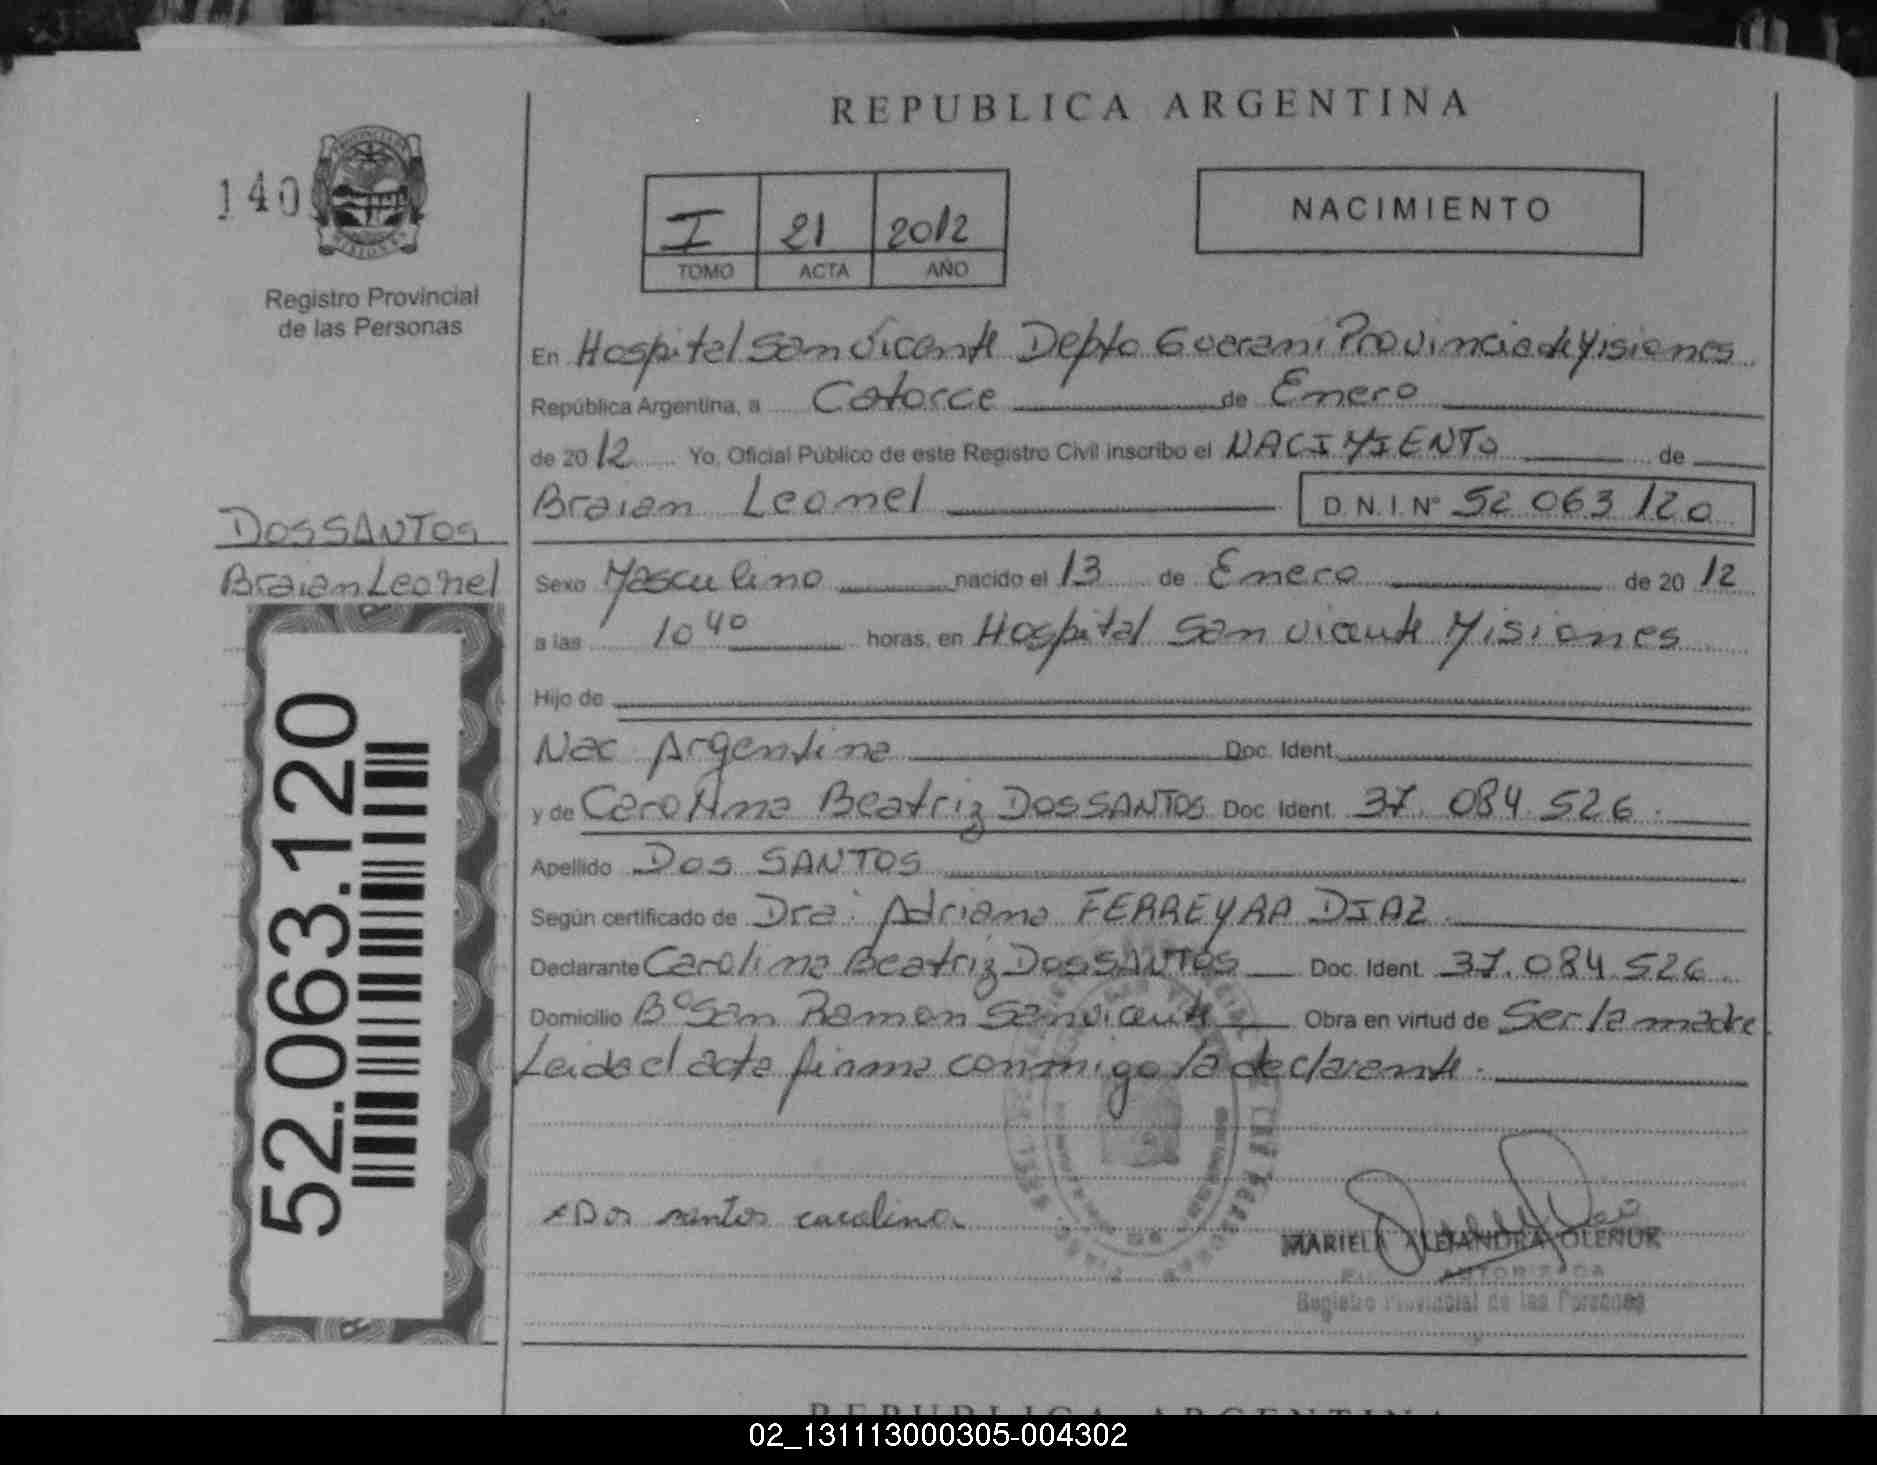 REPUBLICA ARGENTINA
140
Registro Provincial
de las Personas
I 21 2012
TOMO ACTA AÑO
NACIMIENTO
En Hospital San Vicente Depto Guarani Provincia de Misiones
República Argentina, a Catorce de Enero
de 2012 Yo, Oficial Público de este Registro Civil inscribo el NACIMIENTO de
Braian Leonel D.N.I.Nº 52 063 120
DOS SANTOS
Braian Leonel
Sexo Masculino nacido el 13 de Enero de 2012
a las 10 40 horas, en Hospital San Vicente Misiones
Hijo de
Nac Argentina Doc. Ident.
y de Carolina Beatriz DOS SANTOS Doc. Ident. 37.084.526.
Apellido Dos SANTOS
Según certificado de Dra. Adriana FERREYRA DIAZ
Declarante Carolina Beatriz DOS SANTOS Doc. Ident. 37.084.526
Domicilio Bº San Ramon San Vicente Obra en virtud de Ser la madre
Leida el acta firma conmigo la declarante.
52.063.120
Dos santos carolina
MARIELA ALEJANDRA OLENUK
AUTORIZADA
Registro Provincial de las Personas
REPUBLICA ARGENTINA
02_131113000305-004302